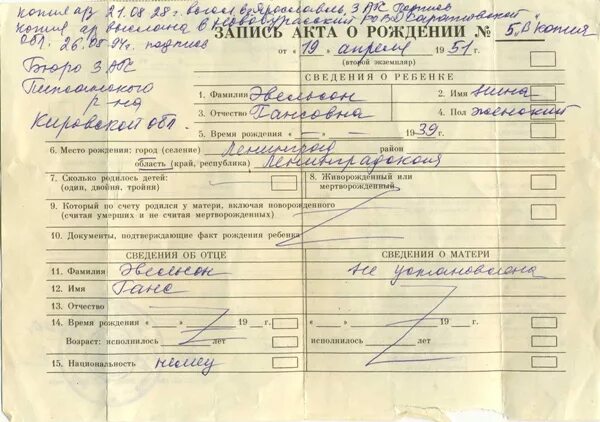 копия а/з 21.08.28г. в Ярославль, ЗАГС подпись
копия а/з выслана в Новобурасский РОВД Саратовской
обл. 26.08.94г. подпись
ЗАПИСЬ АКТА О РОЖДЕНИИ № 5, В копия
от «19» апреля 1951 г.
(второй экземпляр)
Бюро ЗАГС
р-на
Кировской обл.
СВЕДЕНИЯ О РЕБЕНКЕ
1. Фамилия Эвельсон 2. Имя Нина
3. Отчество Гансовна 4. Пол женский
5. Время рождения « — » — 1939 г.
6. Место рождения: город (селение) Ленинград район
область (край, республика) Ленинградская
7. Сколько родилось детей: (один, двойня, тройня) 8. Живорожденный или мертворожденный
9. Который по счету родился у матери, включая новорожденного
(считая умерших и не считая мертворожденных)
10. Документы, подтверждающие факт рождения ребенка
СВЕДЕНИЯ ОБ ОТЦЕ СВЕДЕНИЯ О МАТЕРИ
11. Фамилия Эвельсон не установлена
12. Имя Ганс
13. Отчество
14. Время рождения « » 19 г. « » 19 г.
Возраст: исполнилось лет исполнилось лет
15. Национальность немец